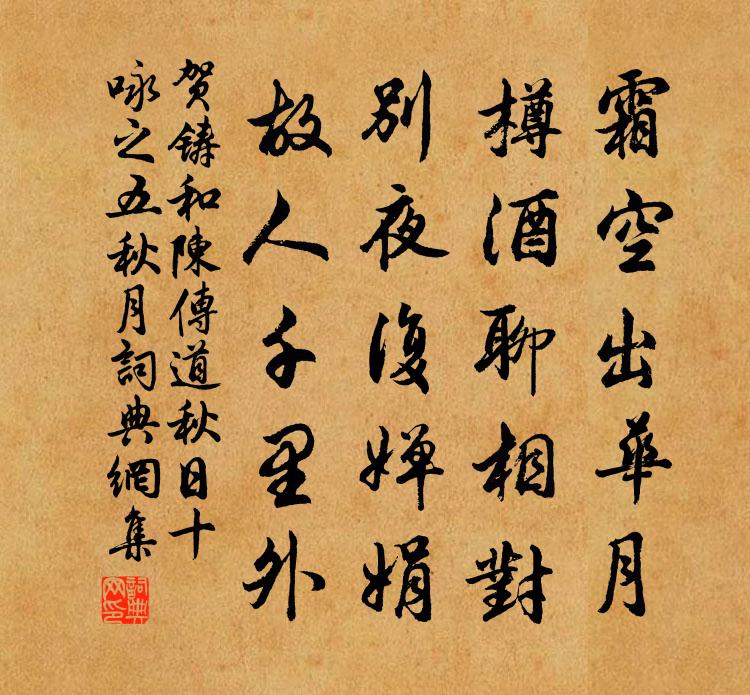 霜空出華月
樽酒聊相對
別夜復嬋娟
故人千里外
賀鑄和陳傳道秋日十
咏之五秋月詞典網集
詞典
网印